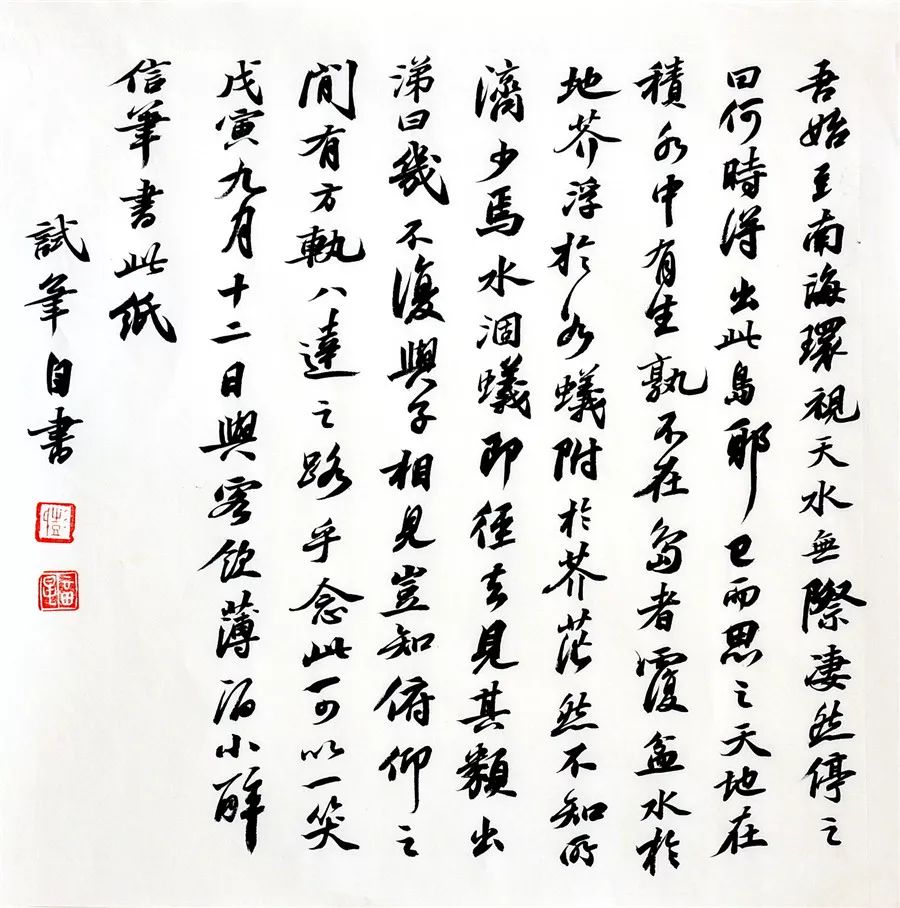 吾始至南海環視天水無際淒然停之
曰何時得出此島耶已而思之天地在
積水中有生孰不在島者覆盆水於
地芥浮於水蟻附於芥茫然不知所
濟少焉水涸蟻即徑去見其類出
涕曰幾不復與子相見豈知俯仰之
間有方軌八達之路乎念此一可以一笑
戊寅九月十二日與客飲薄酒小醉
信筆書此紙
試筆自書